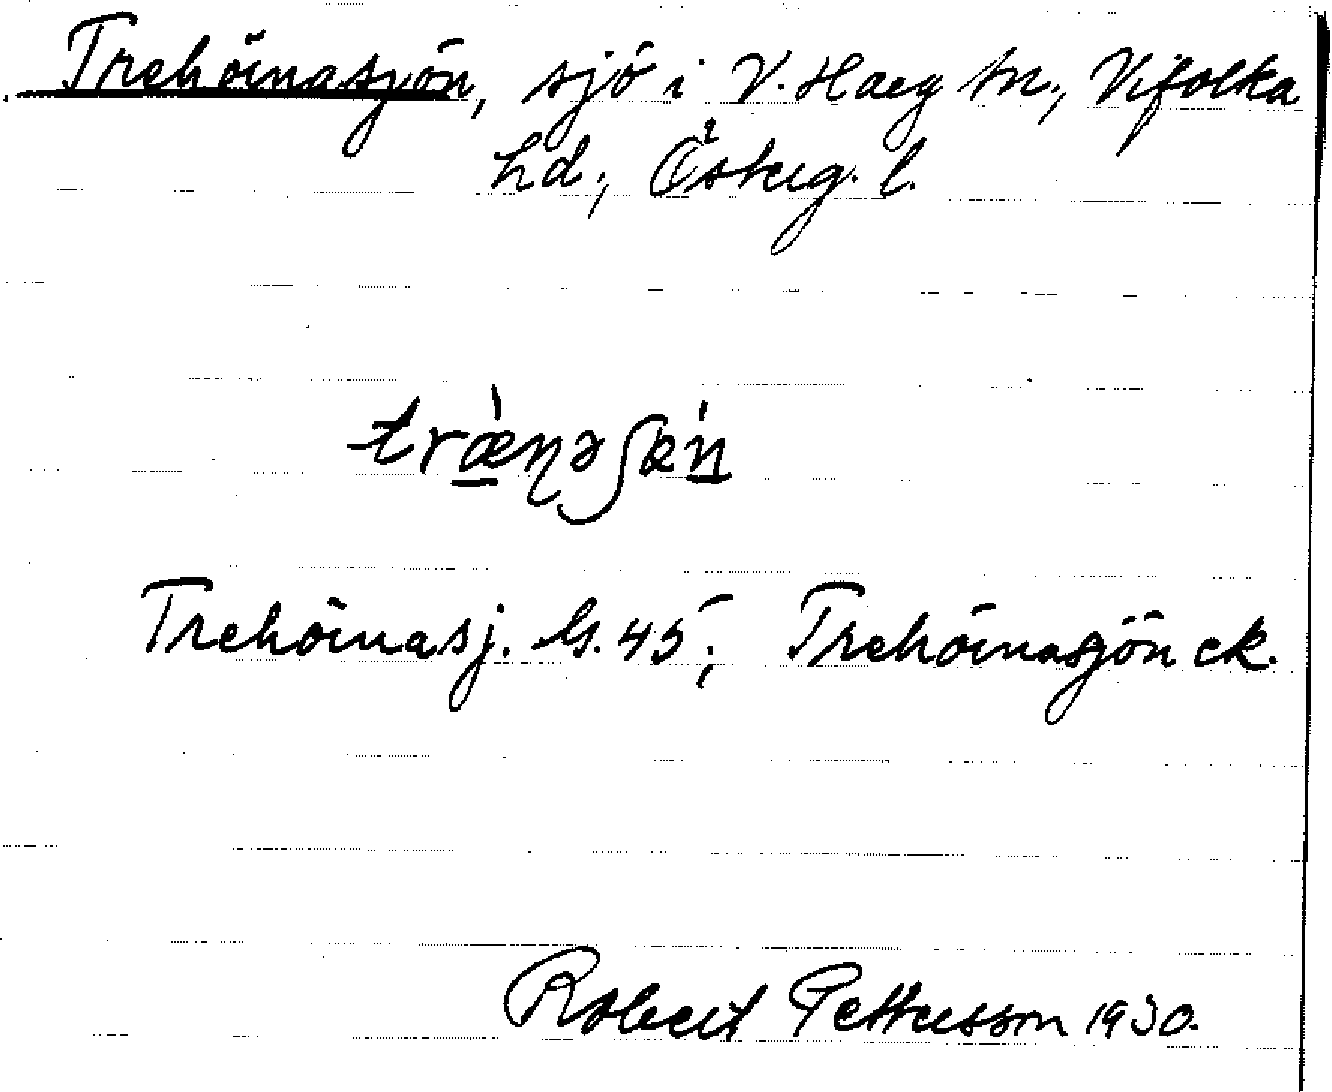 Trehörnasjön, sjö i V. Harg sn., Vifolka
hd, Österg. l.
træ̀ŋəʃøń
Trehörnasj. G. 45; Trehörnasjön ek.
Robert Pettersson 1930.